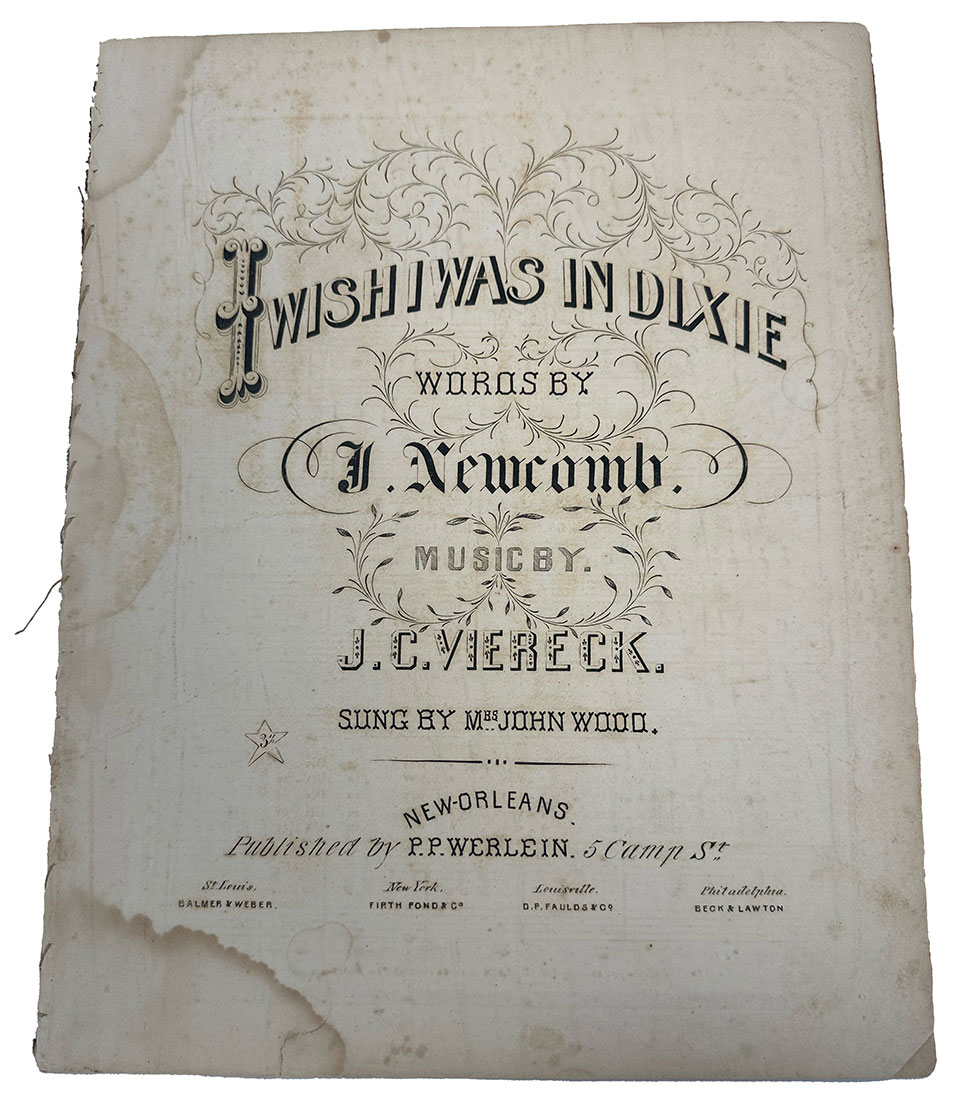 I WISH I WAS IN DIXIE
WORDS BY
J. Newcomb.
MUSIC BY.
J.C. VIERECK.
SUNG BY MRS JOHN WOOD.
NEW-ORLEANS.
Published by P.P. WERLEIN. 5 Camp St.
St Louis. New York. Louisville. Philadelphia.
BALMER & WEBER. FIRTH POND & Co D.P. FAULDS & Co BECK & LAWTON